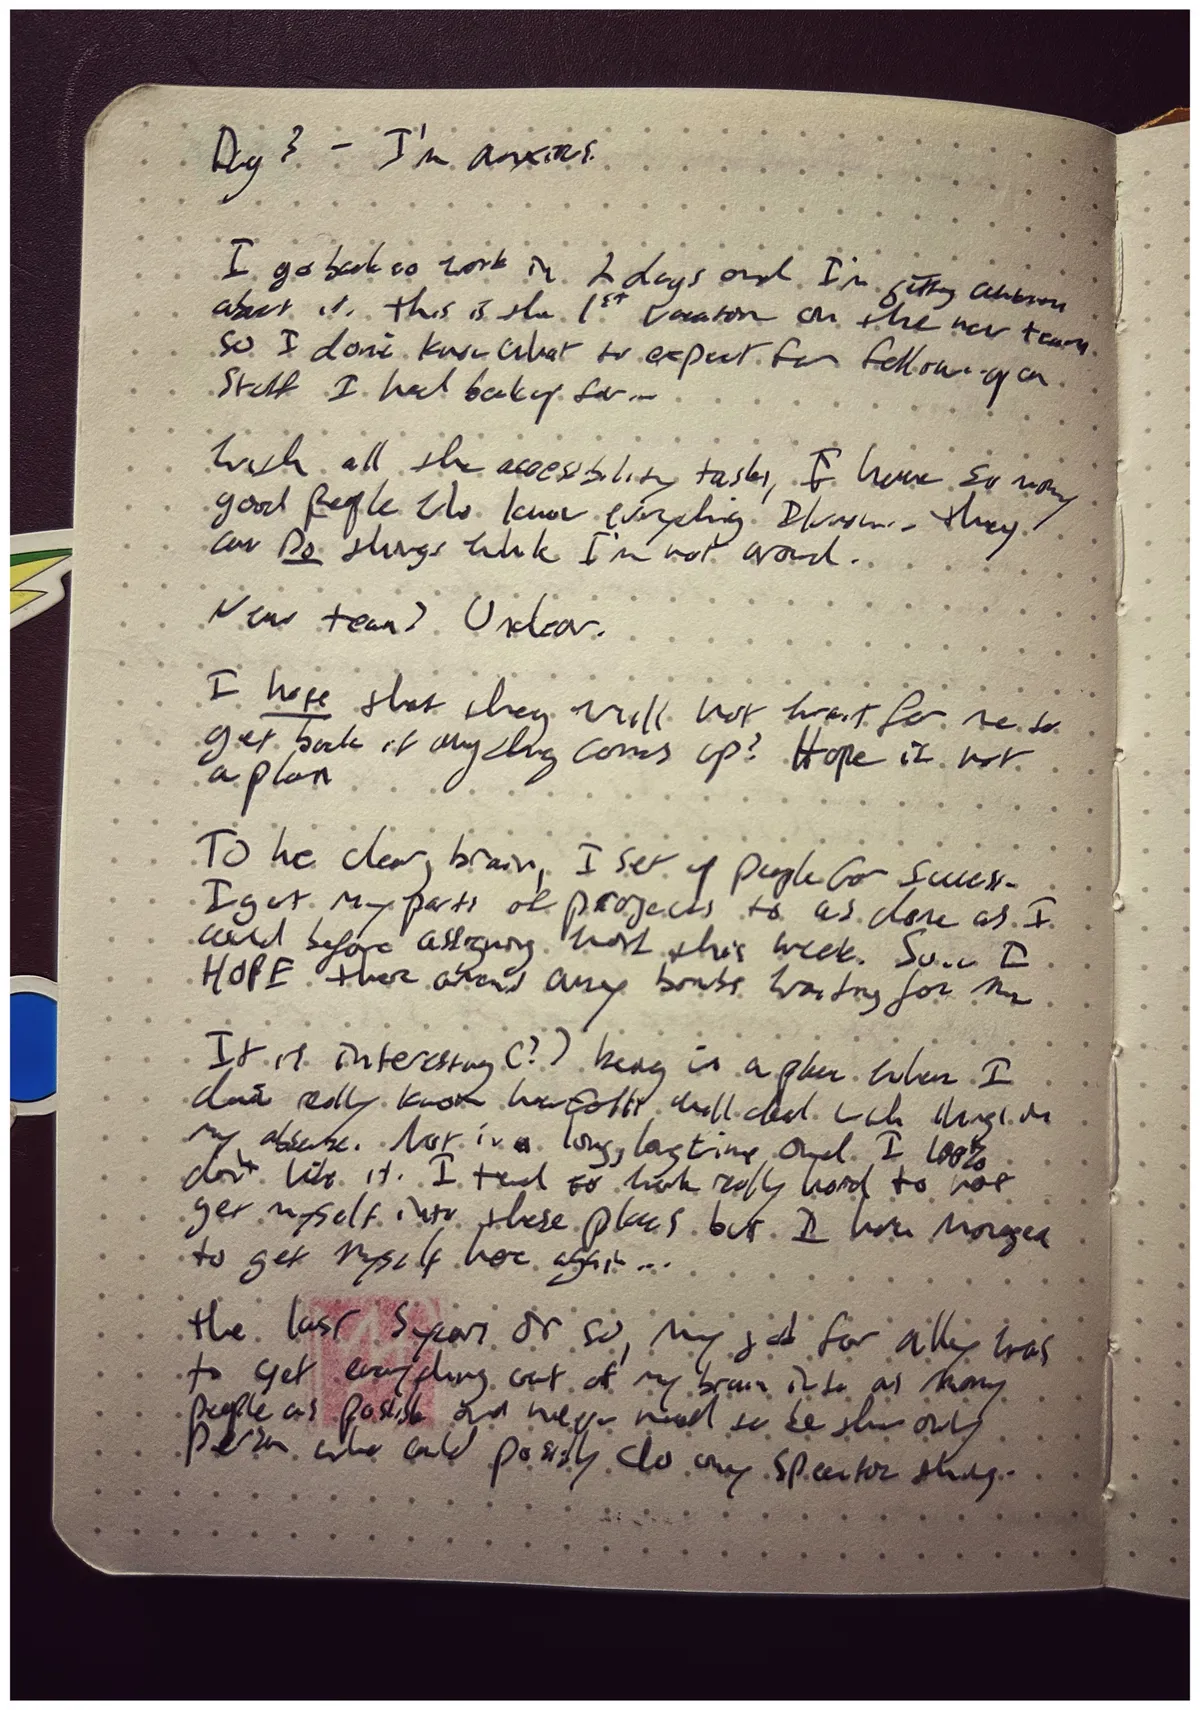 Day 3 - I'm anxious.
I go back to work in 2 days and I'm getting
about it. this is the 1st vacation on the new team
so I don't know what to expect for follow-up on
stuff I had backup for...
With all the accessibility tasks, I have so many
good people who know everything I know... they
can Do things while I'm not around.
New team? Unclear.
I hope that they will not wait for me to
get back if anything comes up? Hope is not
a plan
To be clear, brain, I set up people for success.
I got my parts of projects to as done as I
could before assigning most this week. So... I
HOPE there aren't any bombs waiting for me
It is interesting (?) being in a place where I
don't really know how folks will deal with things in
my absence. Not in a long, long time and I 100%
don't like it. I tend to work really hard to not
get myself into these places but I have managed
to get myself here again...
the last 5 years or so, my job for a11y was
to get everything out of my brain into as many
people as possible and never need to be the only
person who could possibly do any specific thing.